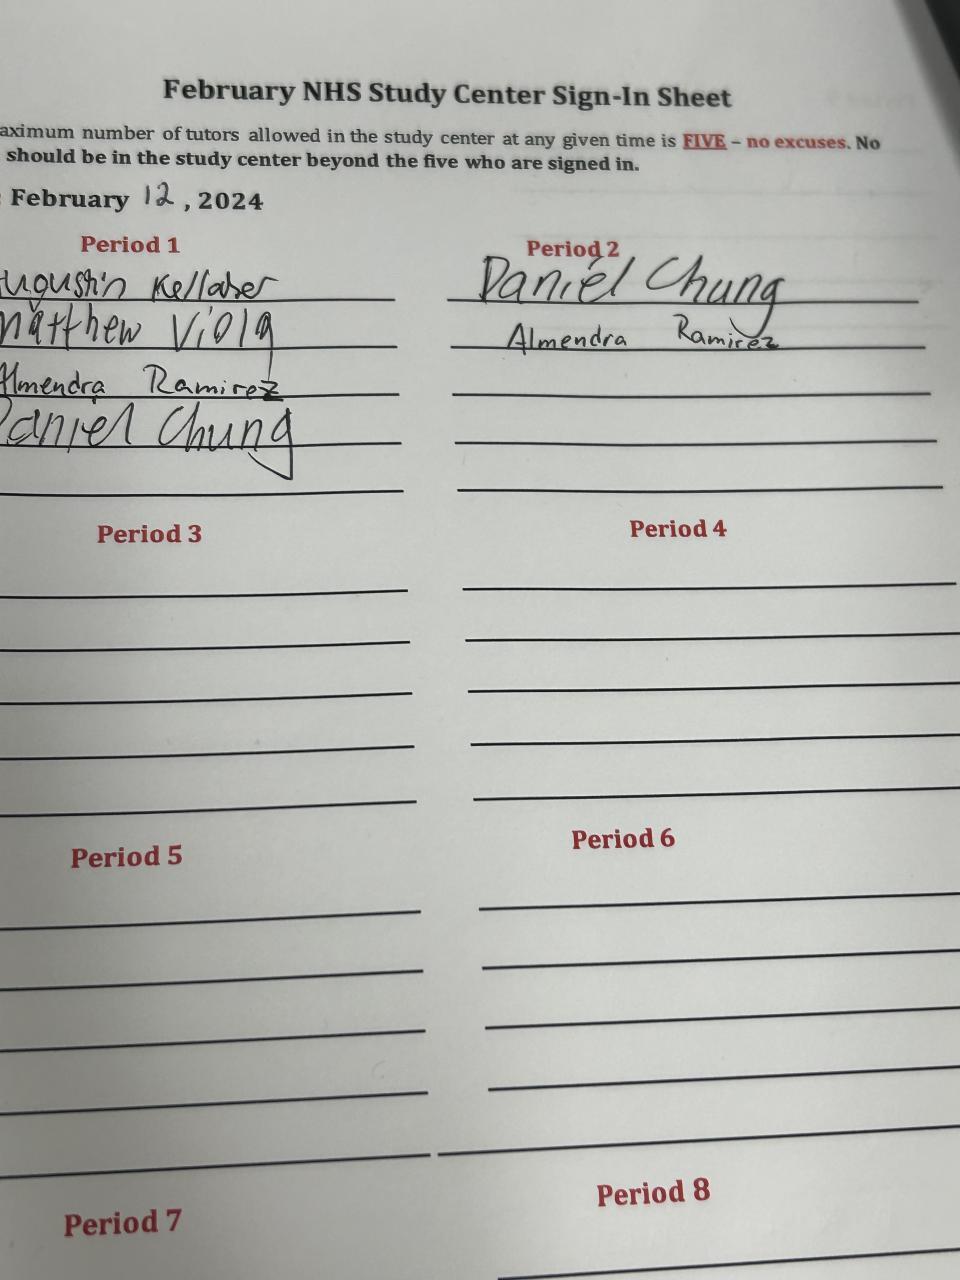 February NHS Study Center Sign-In Sheet
aximum number of tutors allowed in the study center at any given time is FIVE – no excuses. No
should be in the study center beyond the five who are signed in.
: February 12, 2024
Period 1
ugustin Kellaher
Matthew Viola
Almendra Ramirez
Daniel Chung
Period 2
Daniel Chung
Almendra Ramirez
Period 3
Period 4
Period 5
Period 6
Period 7
Period 8